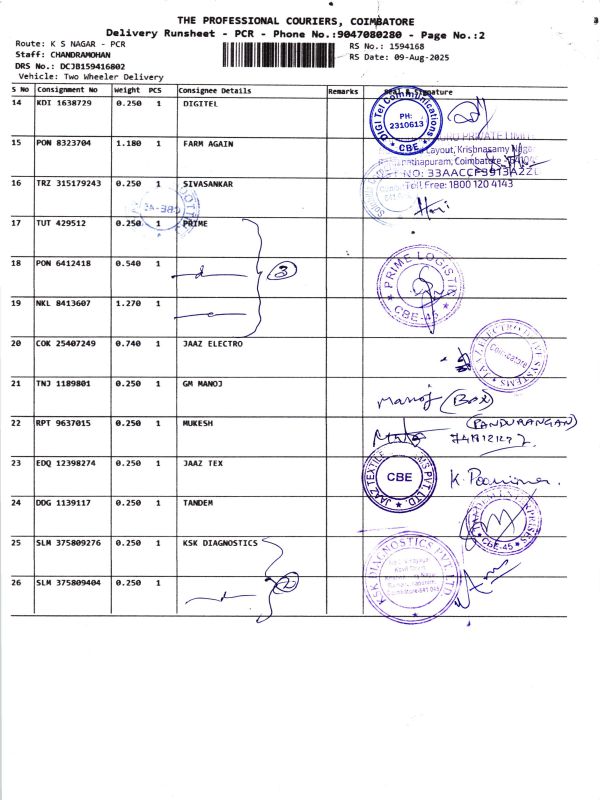 THE PROFESSIONAL COURIERS, COIMBATORE
Delivery Runsheet - PCR - Phone No.:9047080280 - Page No.:2
Route: K S NAGAR - PCR
RS No.: 1594168
Staff: CHANDRAMOHAN
RS Date: 09-Aug-2025
DRS No.: DCJB159416802
Vehicle: Two Wheeler Delivery
S No Consignment No Weight PCS Consignee Details Remarks Seal & Signature
14 KDI 1638729 0.250 1 DIGITEL
DIGI Tel Communications
PH:
2310613
CBE
15 PON 8323704 1.180 1 FARM AGAIN
PRIVATE LIMIT
Layout, Krishnasamy Nagar
Ramanathapuram, Coimbatore
NO: 33AACCF3913A2ZL
Toll Free: 1800 120 4143
16 TRZ 315179243 0.250 1 SIVASANKAR
17 TUT 429512 0.250 1 PRIME
18 PON 6412418 0.540 1
3
PRIME LOGISTIK
CBE-45
19 NKL 8413607 1.270 1
20 COK 25407249 0.740 1 JAAZ ELECTRO
JAAZ ELECTRO DRIVE SYSTEMS
Coimbatore
21 TNJ 1189801 0.250 1 GM MANOJ
Manoj (Box)
22 RPT 9637015 0.250 1 MUKESH
(PANDURANGAN)
23 EDQ 12398274 0.250 1 JAAZ TEX
JAAZ TEXTILE
PVT. LTD.
CBE
K. Poornima
24 DDG 1139117 0.250 1 TANDEM
ENTERPRISES
CBE-45
25 SLM 375809276 0.250 1 KSK DIAGNOSTICS
KSK DIAGNOSTICS PVT LTD
26 SLM 375809404 0.250 1
2